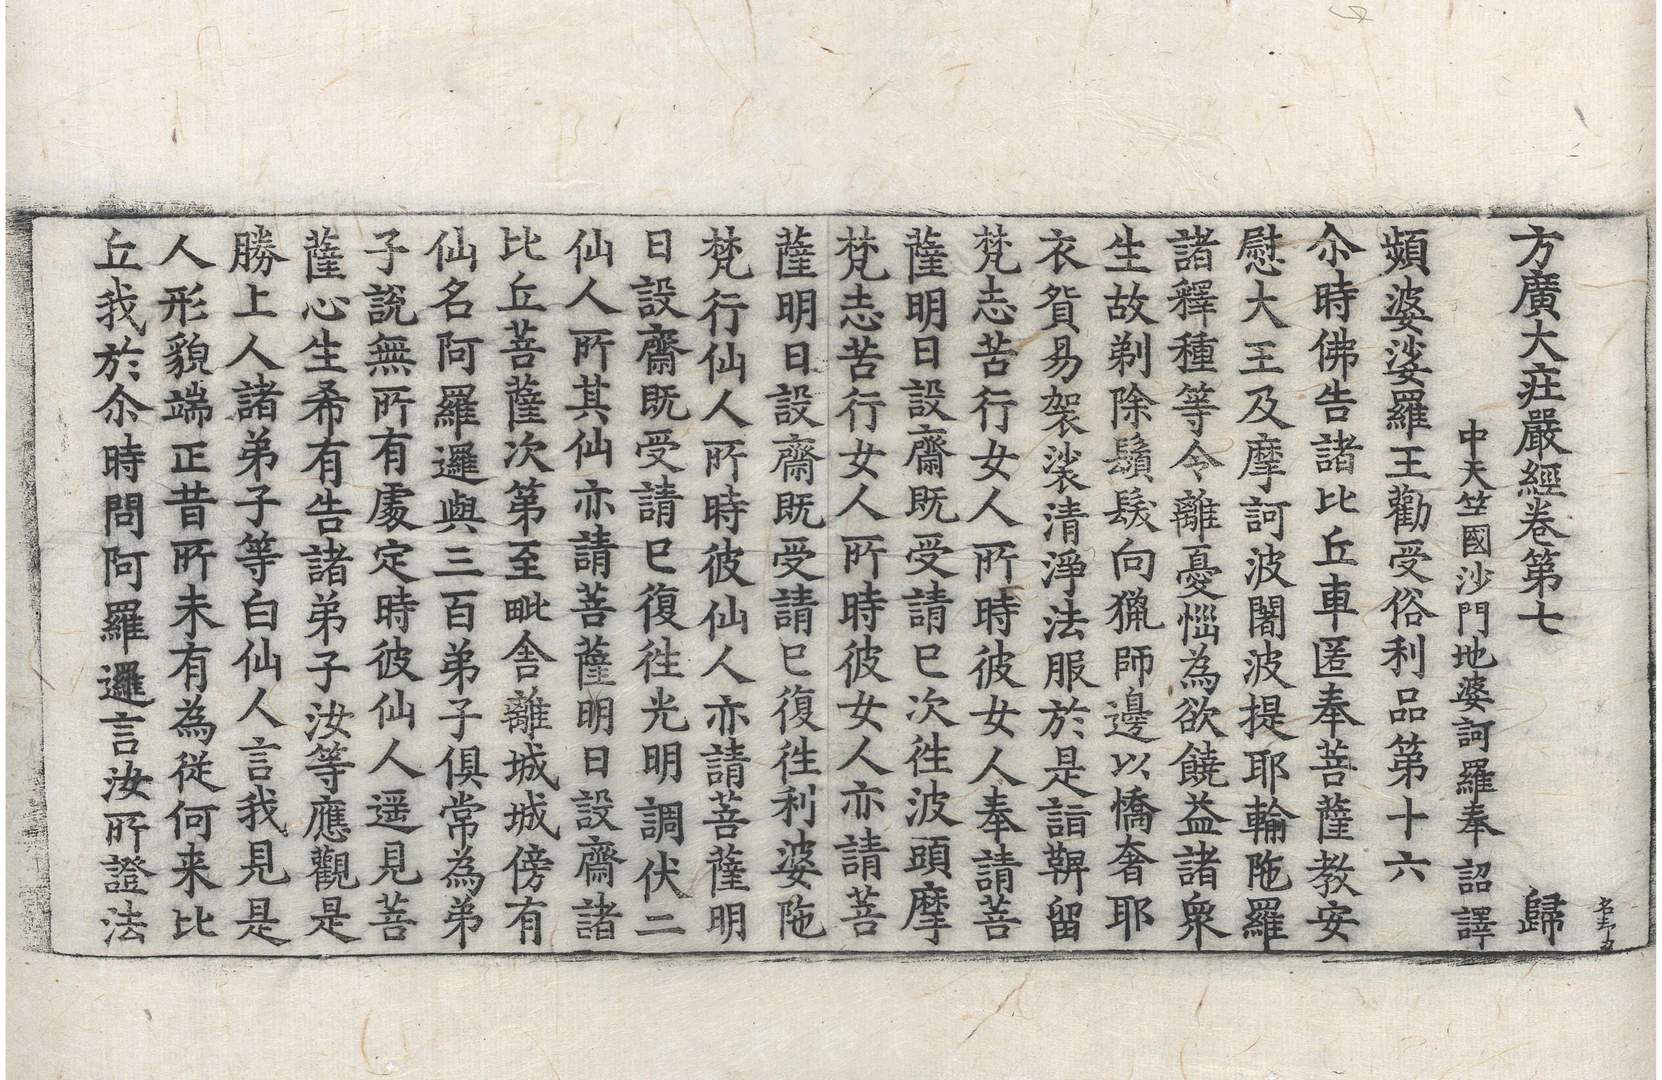 方廣大庄嚴經卷第七 歸
中天竺國沙門地婆訶羅奉 詔譯
頻婆娑羅王勸受俗利品第十六
尒時佛告諸比丘車匿奉菩薩教安
慰大王及摩訶波闍波提耶輸陁羅
諸釋種等令離憂惱為欲饒益諸衆
生故剃除鬚髮向獵師邊以憍奢耶
衣貿易袈裟清淨法服於是詣鞞留
梵志苦行女人所時彼女人奉請菩
薩明日設齋既受請已次往波頭摩
梵志苦行女人所時彼女人亦請菩
薩明日設齋既受請已復往利婆陁
梵行仙人所時彼仙人亦請菩薩明
日設齋既受請已復往光明調伏二
仙人所其仙亦請菩薩明日設齋諸
比丘菩薩次第至毗舍離城城傍有
仙名阿羅邏與三百弟子俱常為弟
子說無所有處定時彼仙人遥見菩
薩心生希有告諸弟子汝等應觀是
勝上人諸弟子等白仙人言我見是
人形貌端正昔所未有為從何来比
丘我於尒時問阿羅邏言汝所證法